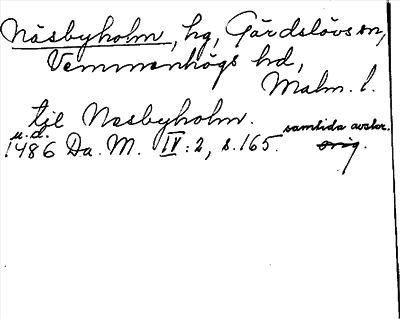 Näsbyholm, hg, Gärdslövs sn,
Vemmenhögs hd,
Malm. l.
til Næsbyholm.
u.d.
1486 Da. M. IV: 2, s. 165. samtida avskr.
orig.